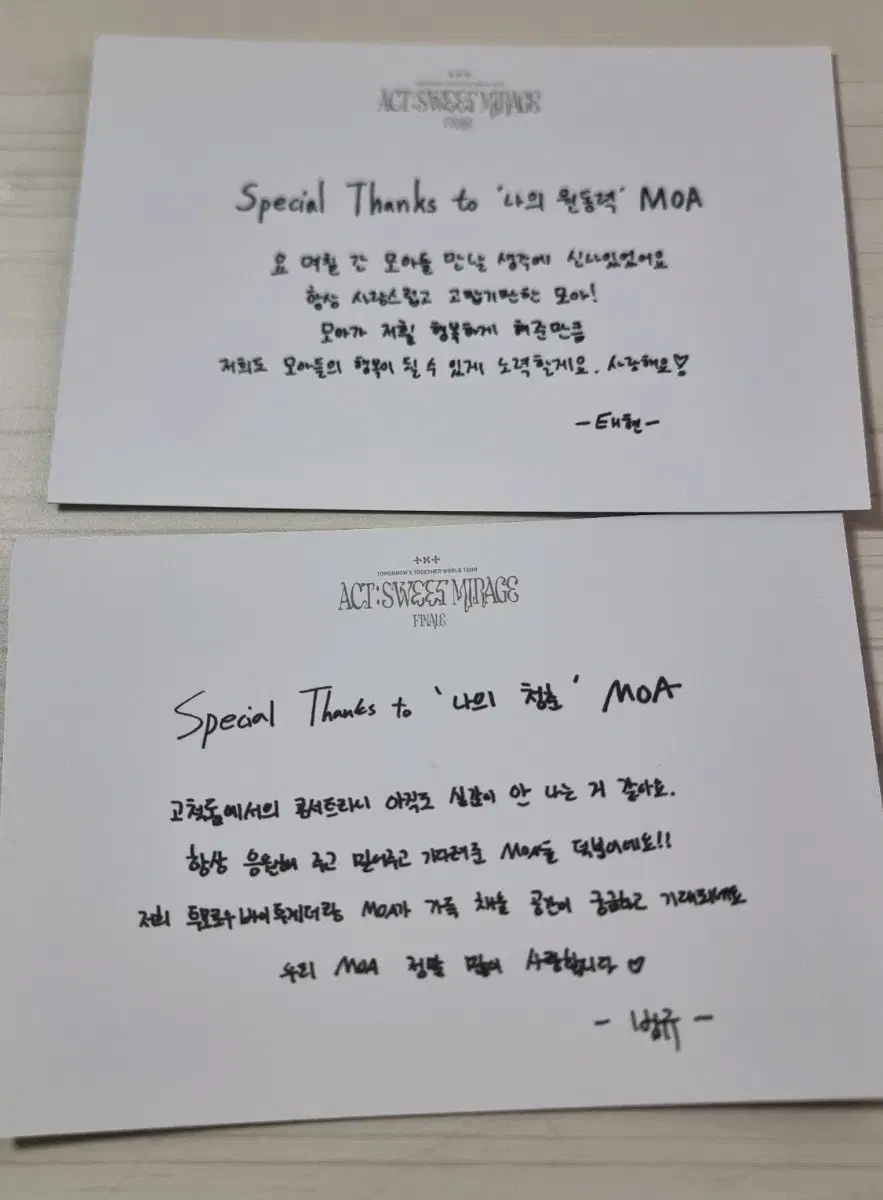 ACT:SWEET MIRAGE
FINALE
Special Thanks to '나의 원동력' MOA
요 며칠 간 모아들 만날 생각에 신나있었어요
항상 사랑스럽고 고맙기만한 모아!
모아가 저흴 행복하게 해준만큼
저희도 모아들의 행복이 될 수 있게 노력할게요. 사랑해요♡
-태현-
TOMORROW X TOGETHER WORLD TOUR
ACT:SWEET MIRAGE
FINALE
Special Thanks to '나의 청춘' MOA
고척돔에서의 콘서트라니 아직도 실감이 안 나는 거 같아요.
항상 응원해 주고 믿어주고 기다려준 MOA들 덕분이에요!!
저희 투모로우바이투게더랑 MOA가 가득 채울 공간이 궁금하고 기대되네요
우리 MOA 정말 많이 사랑합니다♡
- 범규 -